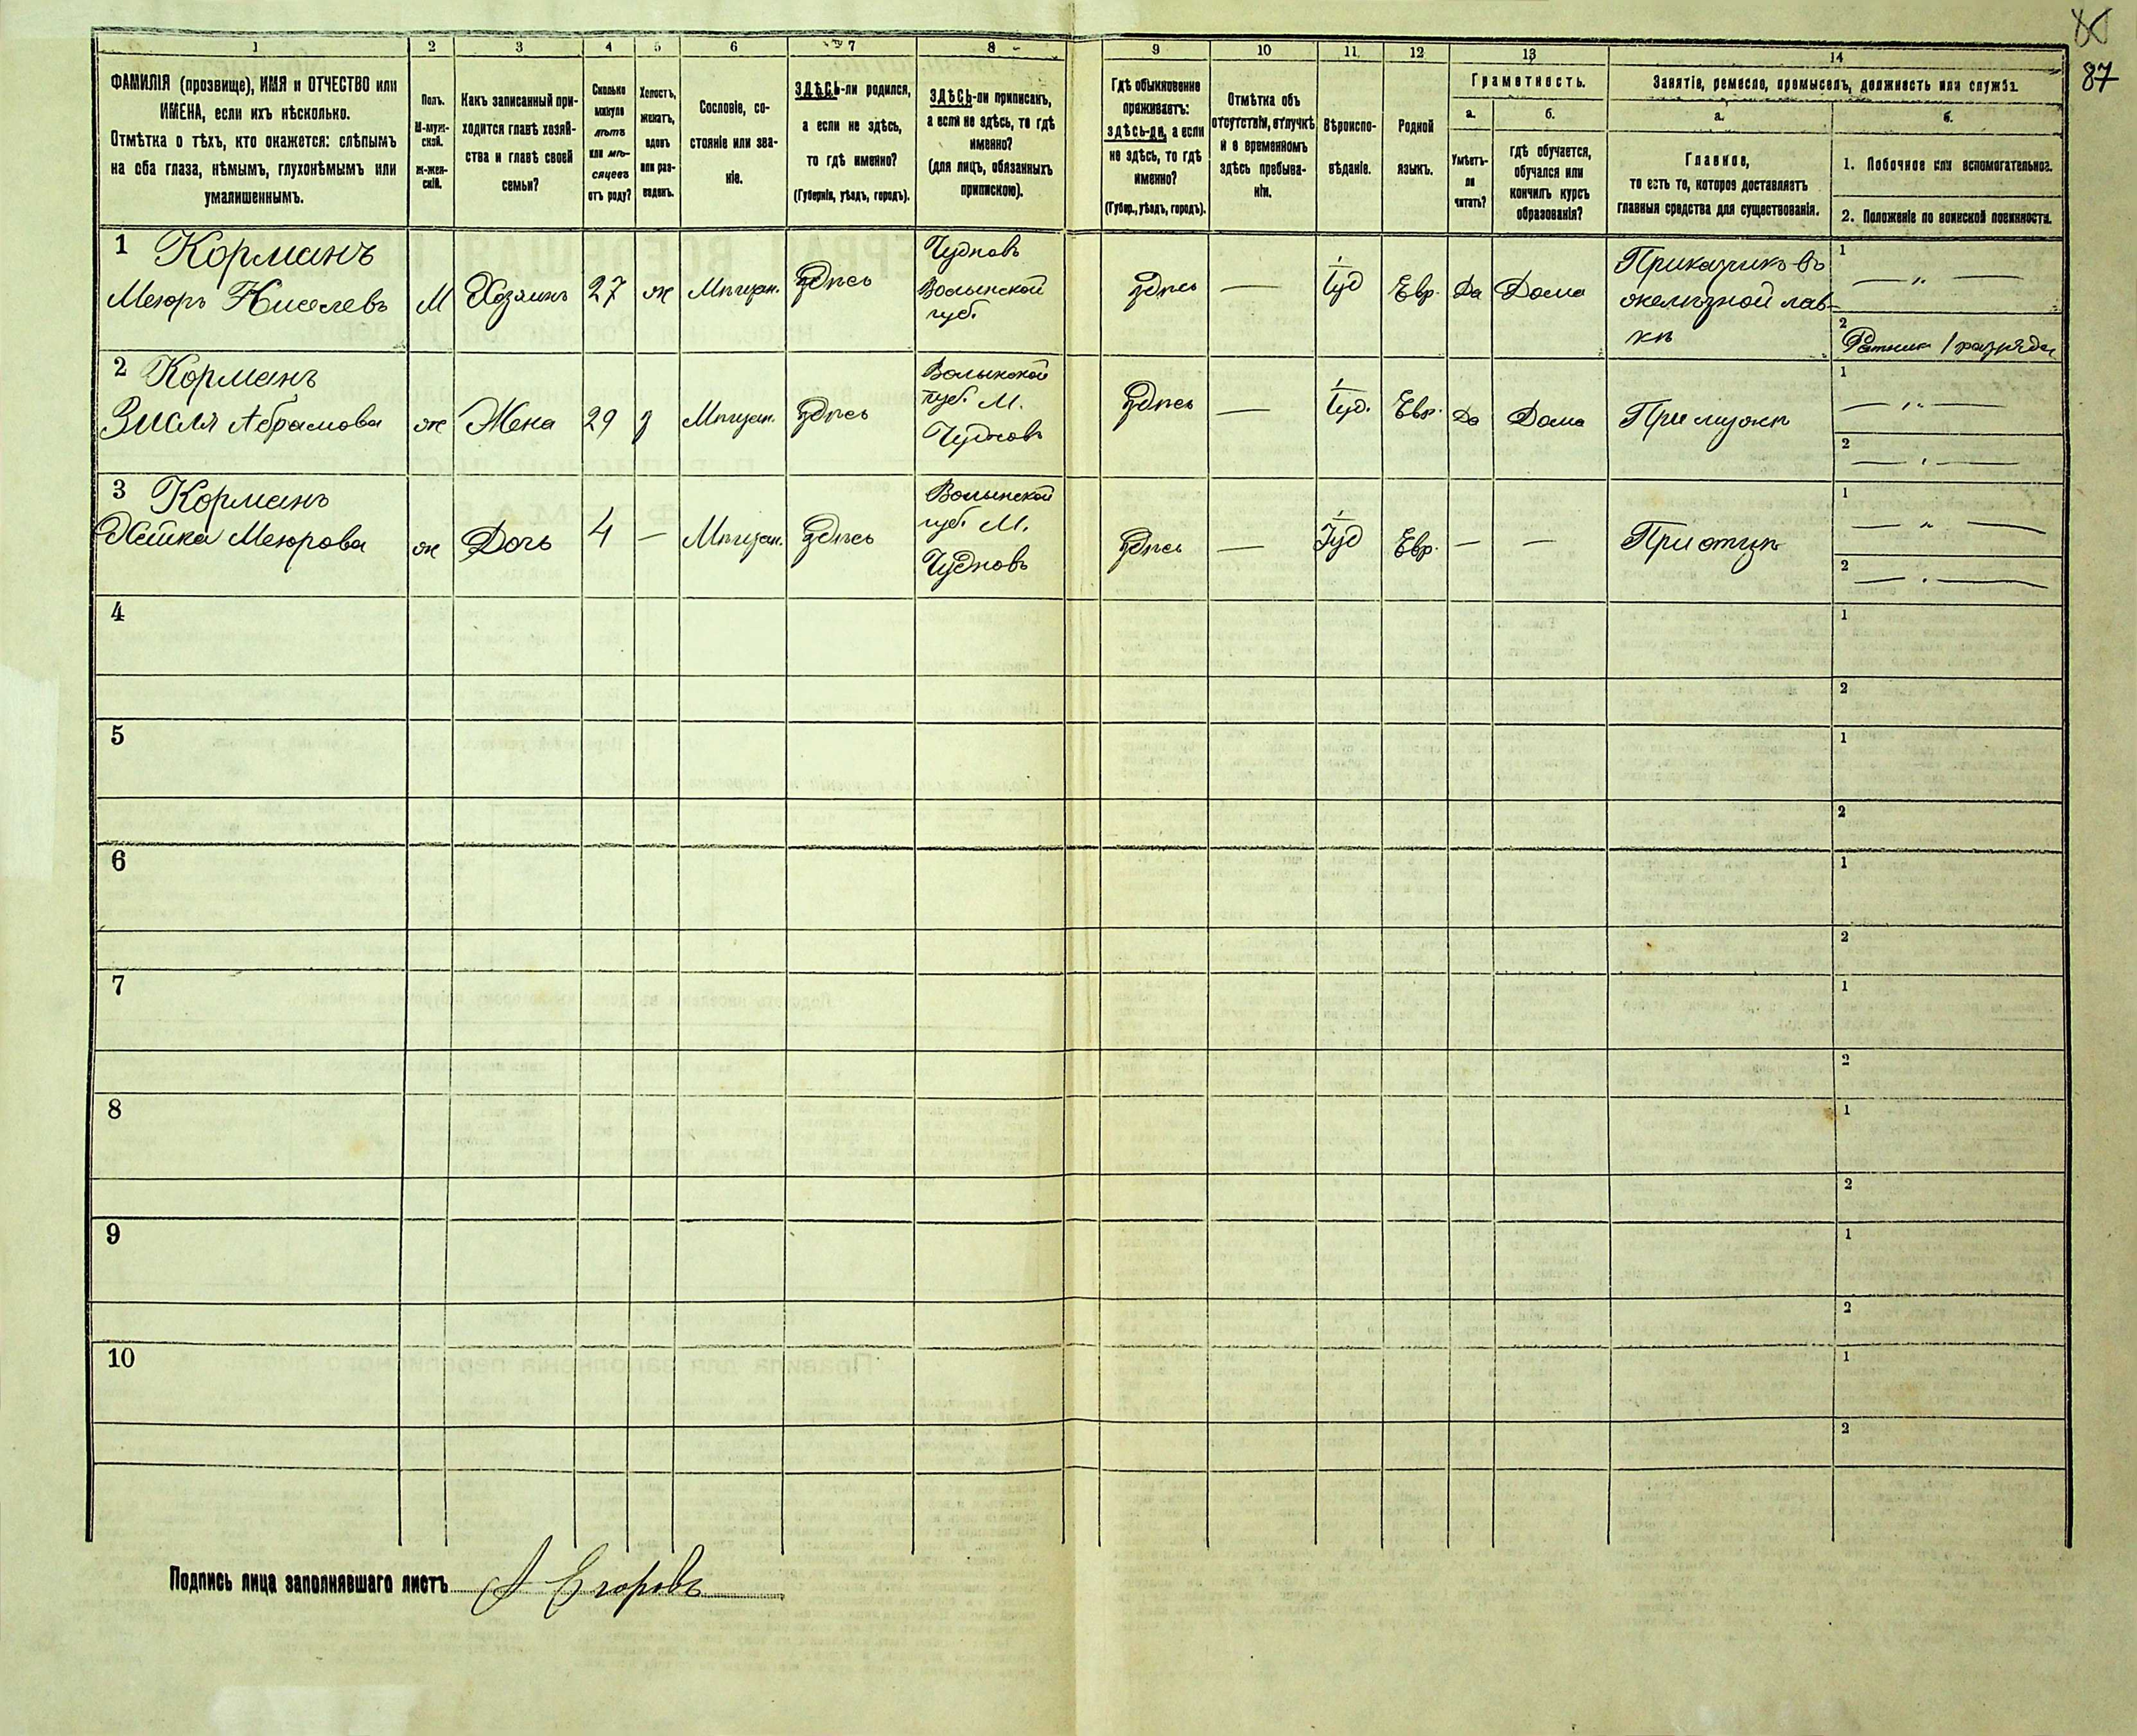 87
1 2 3 4 5 6 7 8 9 10 11 12 13 14
ФАМИЛІЯ (прозвище), ИМЯ и ОТЧЕСТВО или
ИМЕНА, если ихъ нѣсколько.
Отмѣтка о тѣхъ, кто окажется: слѣпымъ
на оба глаза, нѣмымъ, глухонѣмымъ или
умалишеннымъ.
Полъ.
М-муж-
ской.
Ж-жен-
скій.
Какъ записанный при-
ходится главѣ хозяй-
ства и главѣ своей
семьи?
Сколько
минуло
лѣтъ
или мѣ-
сяцевъ
отъ роду?
Холостъ,
женатъ,
вдовъ
или раз-
веденъ.
Сословіе, со-
стояніе или зва-
ніе.
ЗДѢСЬ-ли родился,
а если не здѣсь,
то гдѣ именно?
(Губернія, уѣздъ, городъ).
ЗДѢСЬ-ли приписанъ,
а если не здѣсь, то гдѣ
именно?
(для лицъ, обязанныхъ
припискою).
Гдѣ обыкновенно
проживаетъ:
здѣсь-ли, а если
не здѣсь, то гдѣ
именно?
(Губер., уѣздъ, городъ).
Отмѣтка объ
отсутствіи, отлучкѣ
и о временномъ
здѣсь пребыва-
ніи.
Вѣроиспо-
вѣданіе.
Родной
языкъ.
Грамотность.
а.
Умѣетъ-
ли
читать?
б.
гдѣ обучается,
обучался или
кончилъ курсъ
образованія?
Занятіе, ремесло, промыселъ, должность или служба.
а.
Главное,
то есть то, которое доставляетъ
главныя средства для существованія.
б.
1. Побочное или вспомогательное.
2. Положеніе по воинской повинности.
1 Корманъ
Меюръ Киселевъ
М
Хозяинъ
27
ж
Мѣщан.
Здѣсь
Чудновъ
Волынской
губ.
Здѣсь
—
Іуд
Евр.
Да
Дома
Приказчикъ въ
желѣзной лав-
кѣ
1
— „ —
2
Ратникъ 1 разряда
2 Корманъ
Зисля Абрамова
ж
Жена
29
з
Мѣщан.
Здѣсь
Волынской
губ. М.
Чудновъ
Здѣсь
—
Іуд.
Евр.
Да
Дома
При мужѣ
1
— „ —
2
— „ —
3 Корманъ
Меюрова
ж
Дочь
4
—
Мѣщан.
Здѣсь
Волынской
губ. М.
Чудновъ
Здѣсь
—
Іуд
Евр.
—
—
При отцѣ
1
— „ —
2
— „ —
4
1
2
5
1
2
6
1
2
7
1
2
8
1
2
9
1
2
10
1
2
Подпись лица заполнявшаго листъ А Егоровъ